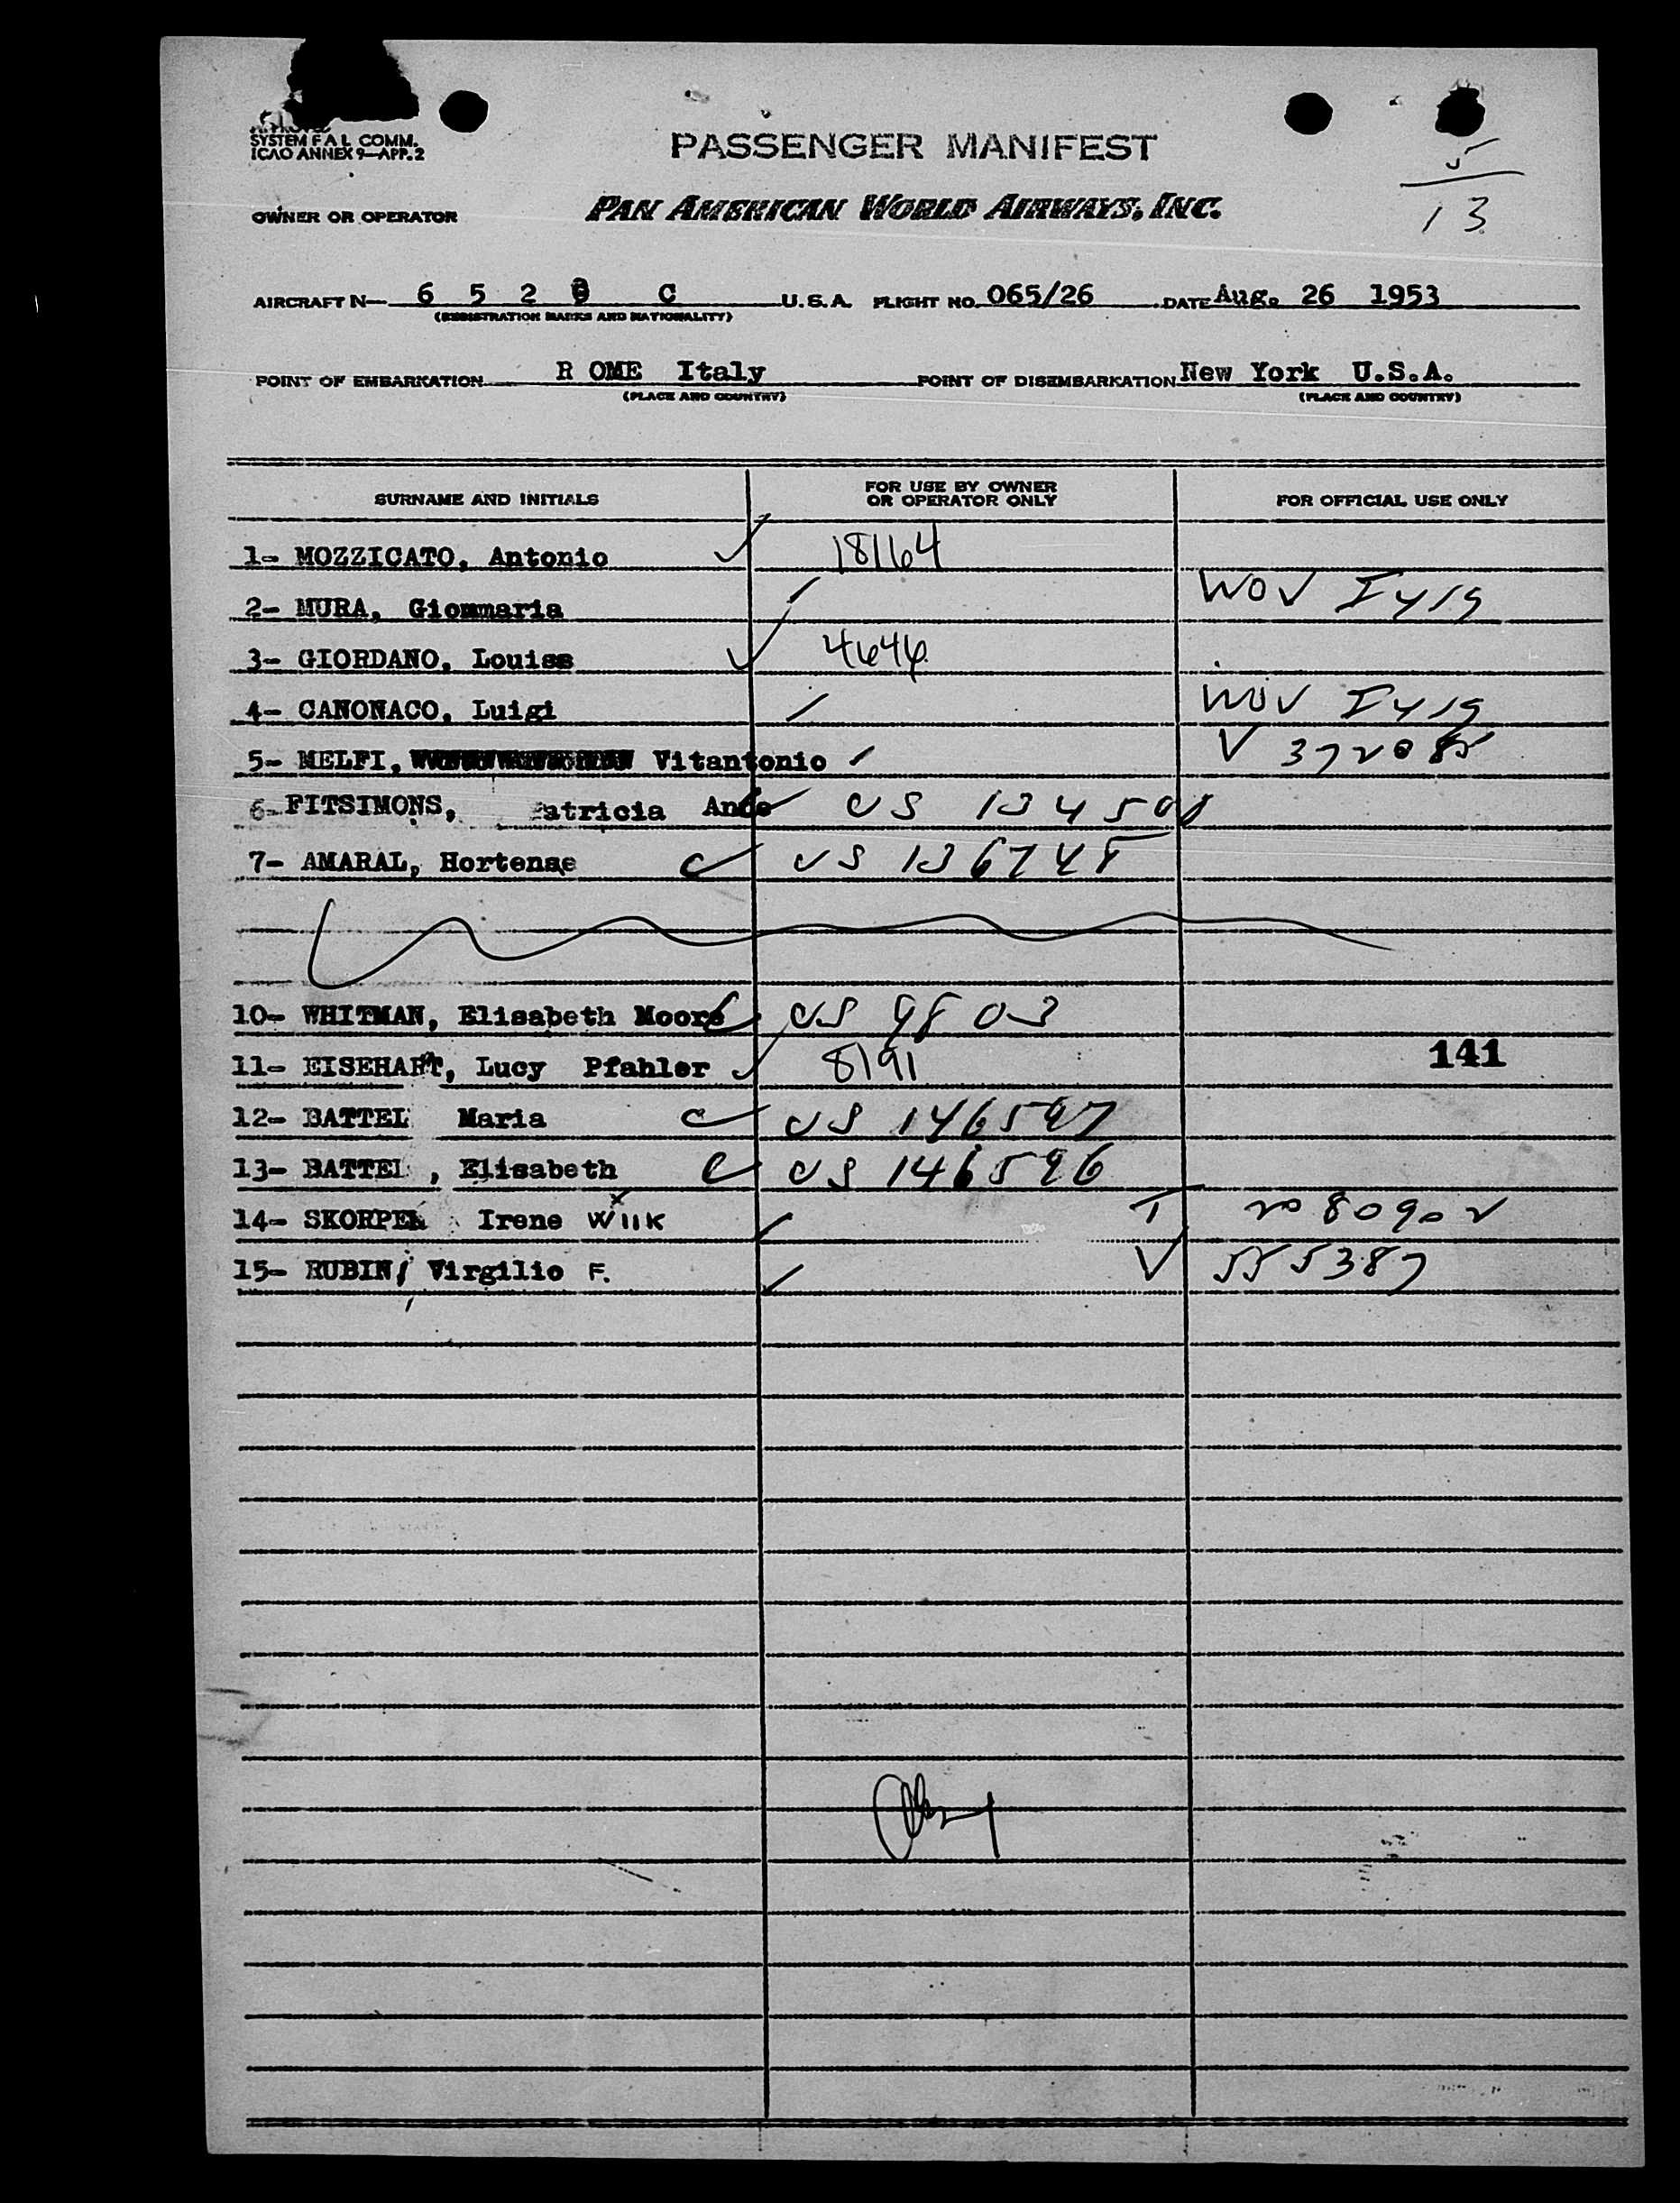 SYSTEM F A L COMM.
ICAO ANNEX 9—APP. 2
PASSENGER MANIFEST
5
13
OWNER OR OPERATOR PAN AMERICAN WORLD AIRWAYS, INC.
AIRCRAFT N— 6 5 2 C U.S.A. FLIGHT NO. 065/26 DATE Aug. 26 1953
(REGISTRATION MARKS AND NATIONALITY)
POINT OF EMBARKATION R OME Italy POINT OF DISEMBARKATION New York U.S.A.
(PLACE AND COUNTRY) (PLACE AND COUNTRY)
SURNAME AND INITIALS FOR USE BY OWNER OR OPERATOR ONLY FOR OFFICIAL USE ONLY
1- MOZZICATO, Antonio 18164
2- MURA, Giommaria
3- GIORDANO, Louise 4646
4- CANONACO, Luigi
5- MELFI, Vitantonio V
6- FITSIMONS, Patricia Anne US
7- AMARAL, Hortense US 136748
10- WHITMAN, Elisabeth Moore US 9803
11- EISEHART, Lucy Pfahler 8191
141
12- BATTEL Maria US 146597
13- BATTEL, Elisabeth US 146596
14- SKORPEN Irene Wiik T 2080902
15- RUBIN, Virgilio F. V 555387